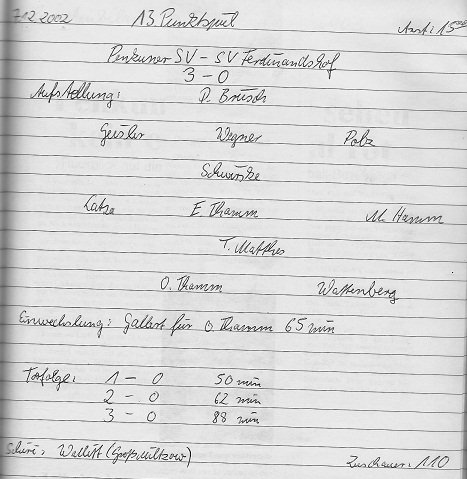 7.12.2002 13. Punktspiel Anst.: 15⁰⁰
Penkuner SV – SV Ferdinandshof
3 – 0
Aufstellung: D. Brüsch
Geisler Wegner Polz
Schwirtzke
Latza E. Thamm M. Hamm
T. Matthes
O. Thamm Wattenberg
Einwechslung: Gallert für O. Thamm 65 min
Torfolge: 1 – 0 50 min
2 – 0 62 min
3 – 0 88 min
Schiri: (Groß Miltzow) Zuschauer: 110